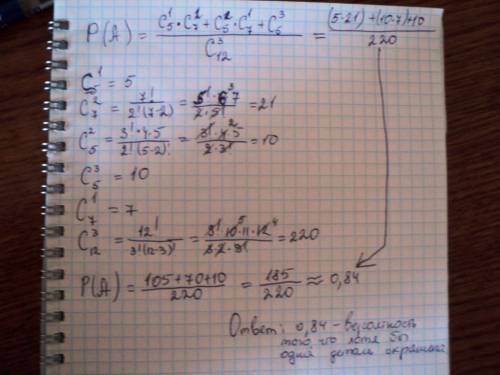 P(A) = (C₅¹·C₇² + C₅²·C₇¹ + C₅³)/C₁₂³ = ((5·21)+(10·7)+10)/220
C₅¹ = 5
C₇² = 7!/(2!(7-2)) = (5!·6³·7)/(2·5!) = 21
C₅² = (3!·4·5)/(2!(5-2)!) = (3!·4²·5)/(2·3!) = 10
C₅³ = 10
C₇¹ = 7
C₁₂³ = 12!/(3!(12-3)!) = (9!·10⁵·11·12⁴)/(3·2·9!) = 220
P(A) = (105+70+10)/220 = 185/220 ≈ 0,84
Ответ: 0,84 - вероятность
того, что хотя бы
одна деталь окрашена